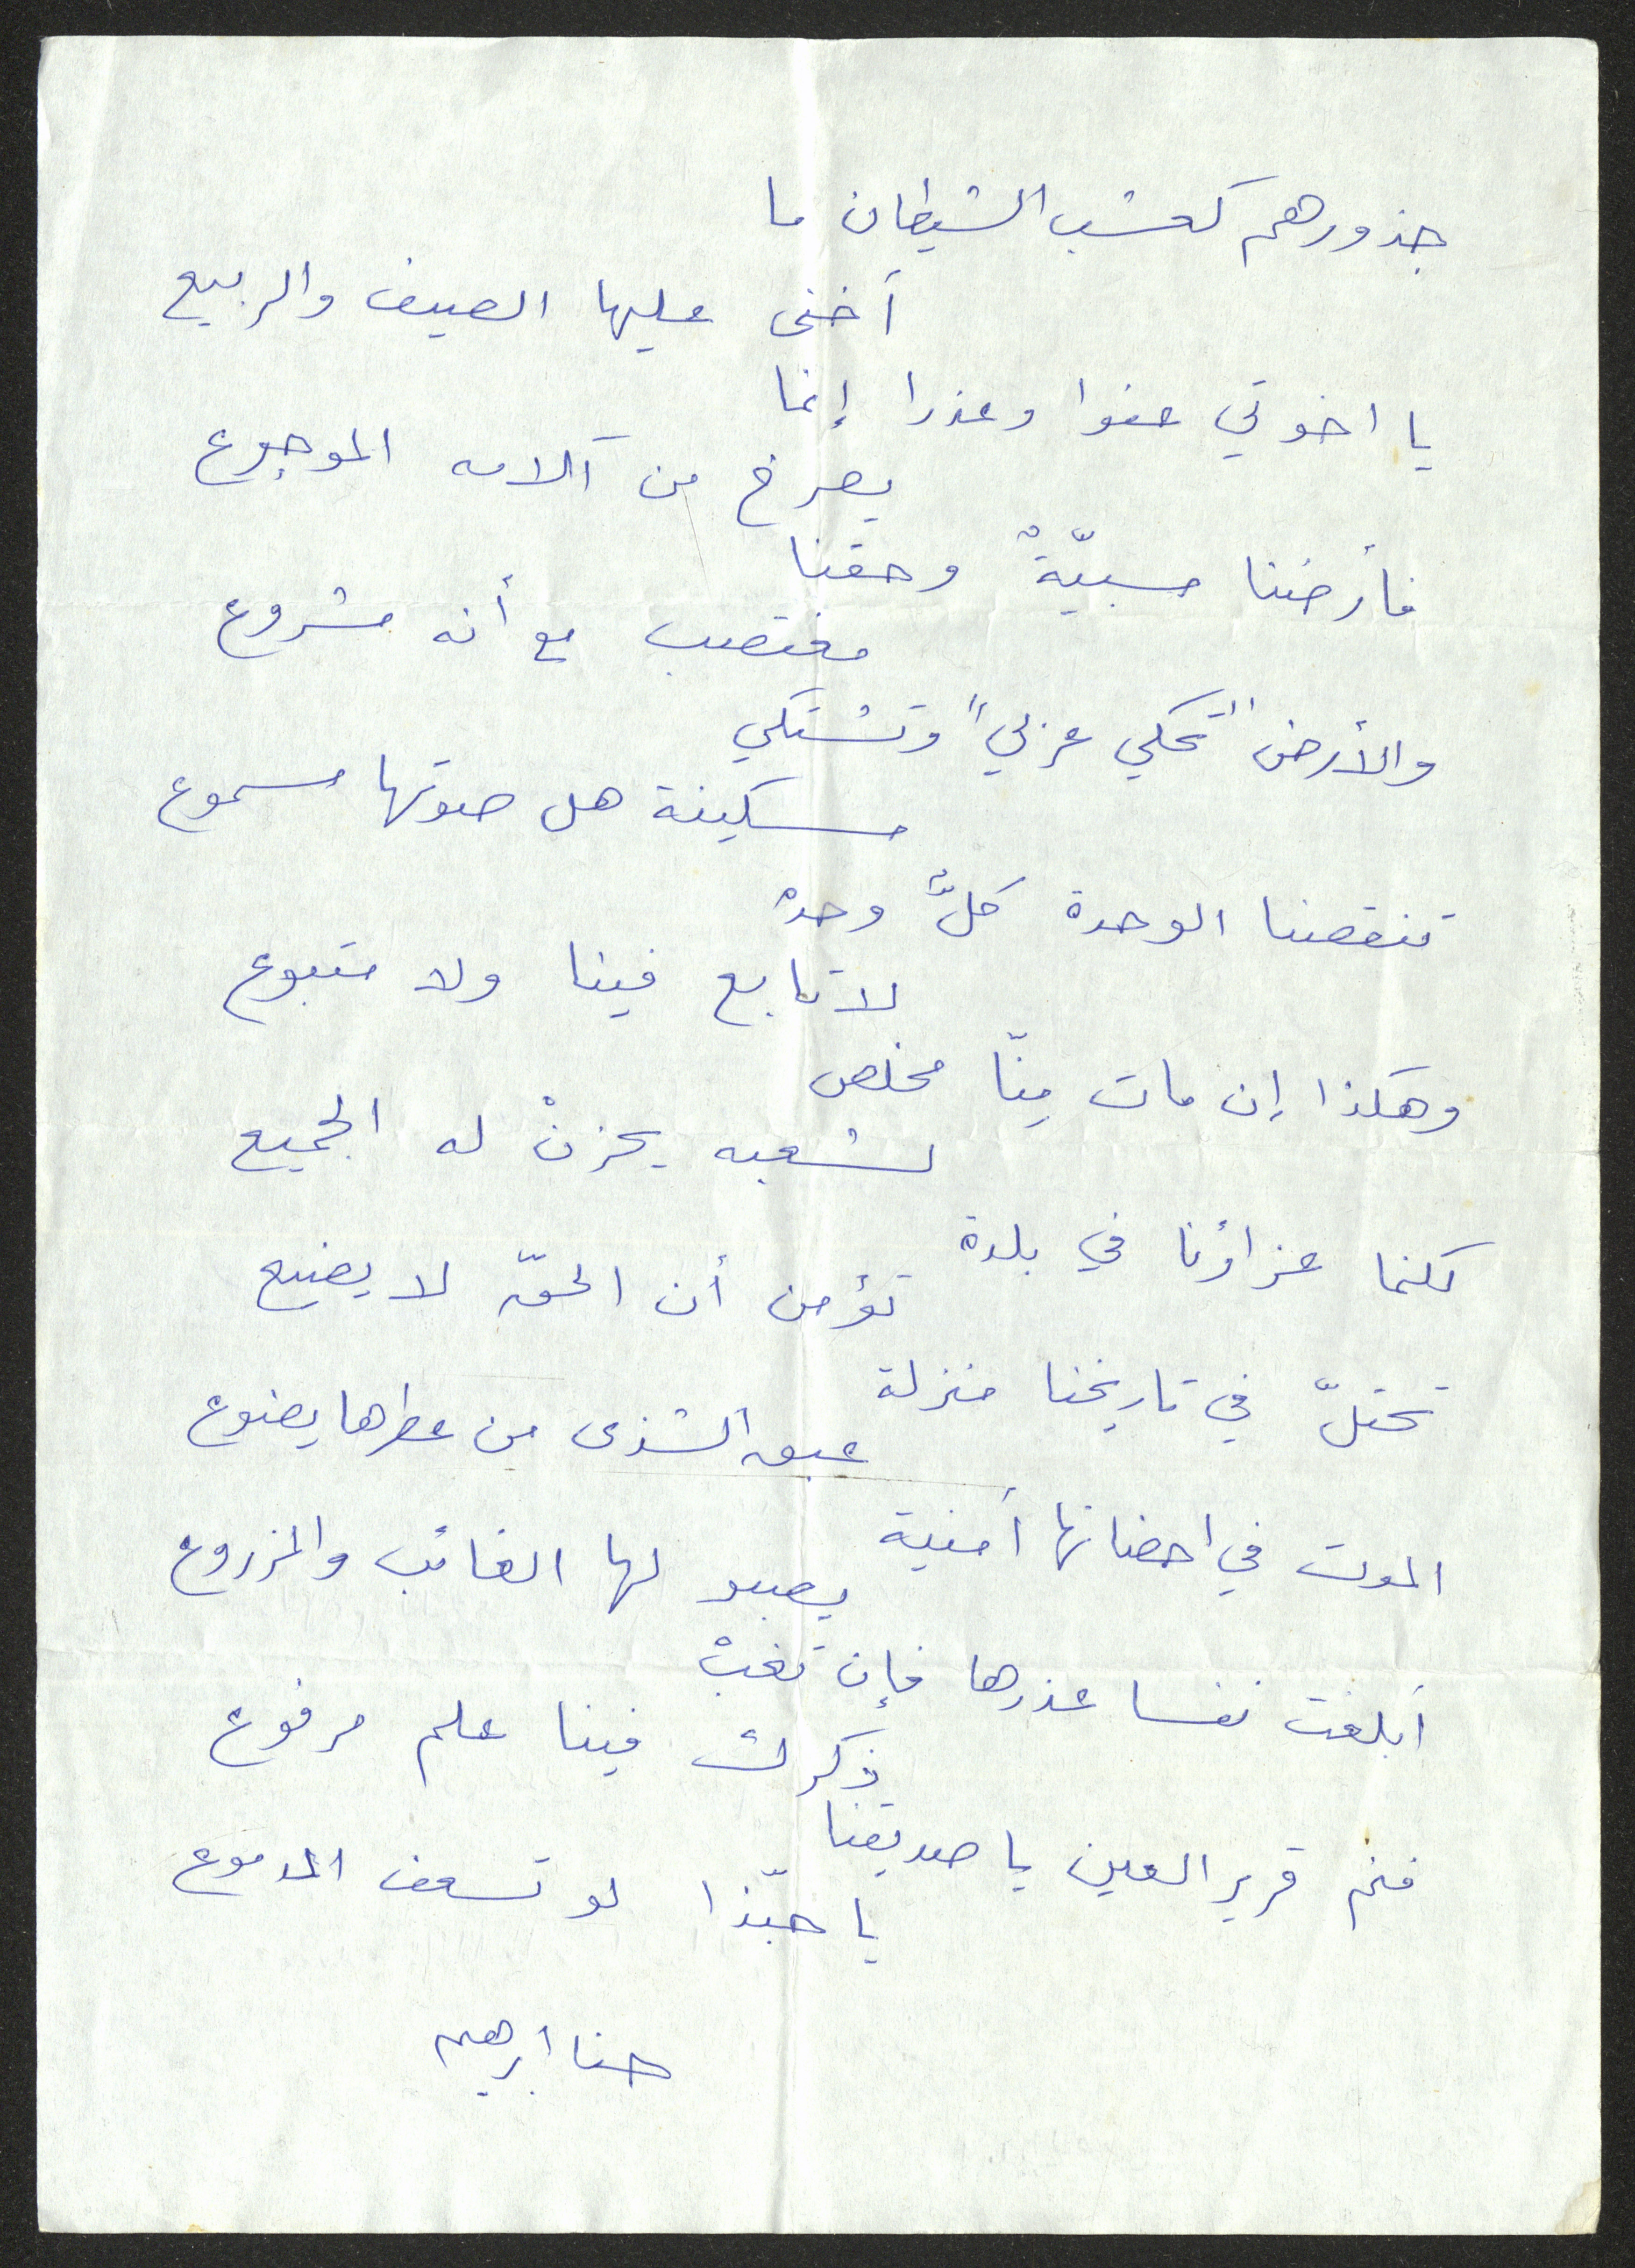 جذورهم كعشب الشيطان ما
أخنى عليها الصيف والربيع
يا اخوتي عفوا وعذرا إنما
يصرخ من آلامه الموجوع
فأرضنا مسبيّةْ وحقنا
مغتصب مع أنه مشروع
والأرض "تحكي عربي" وتشتكي
مسكينة هل صوتها مسموع
تنقصنا الوحدة كلٌّ وحدهْ
لا تابع فينا ولا متبوع
وهكذا إن مات مِنّا مخلص
لشعبه يحزنْ له الجميع
لكنما عزاؤنا في بلدة
تؤمن أن الحقّ لا يضيع
تحتلّ في تاريخنا منزلة
عبق الشذى من عطرها يضوع
الموت في احضانها أمنية
يصبو لها الغائب والمزروع
أبلغت نفسا عذرها فإن تغبْ
ذكرك فينا علم مرفوع
فنم قرير العين يا صديقنا
يا حبّذا لو تسعف الدموع
حنا ابرهيم